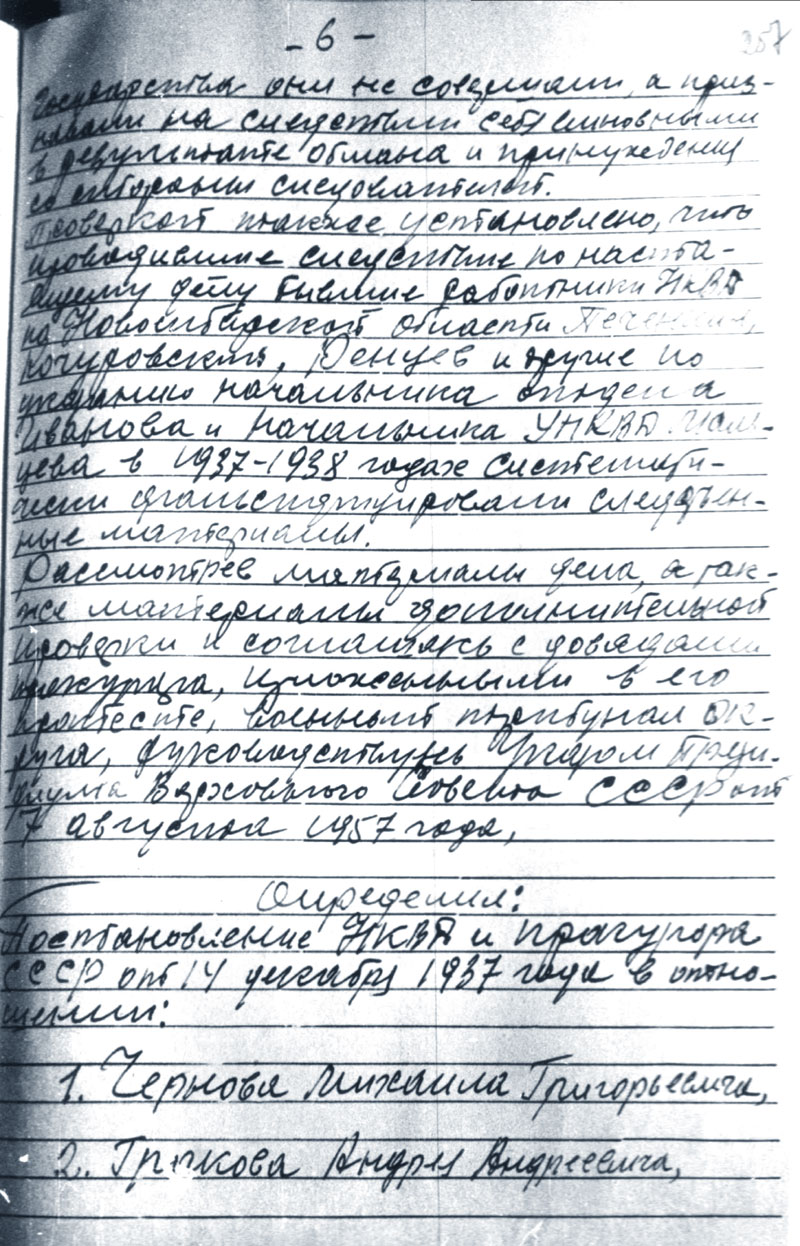 - 6 -
257
государства они не совершали, а приз-
навали на следствии себя виновными
в результате обмана и принуждения
со стороны следователей.
Проверкой также установлено, что
проводившие следствие по насто-
ящему делу бывшие работники НКВД
по Новосибирской области
Качуровский, Денцев и другие по
указанию начальника отдела
Иванова и начальника УНКВД Маль-
цева в 1937-1938 годах системати-
чески фальсифицировали следствен-
ные материалы.
Рассмотрев материалы дела, а так-
же материалы дополнительной
проверки и соглашаясь с доводами
прокурора, изложенными в его
протесте, военный трибунал ок-
руга, руководствуясь Указом Прези-
диума Верховного Совета СССР от
7 августа 1957 года,
Определил:
Постановление НКВД и прокурора
СССР от 14 декабря 1937 года в отно-
шении:
1. Чернова Михаила Григорьевича,
2. Андрея Андреевича,